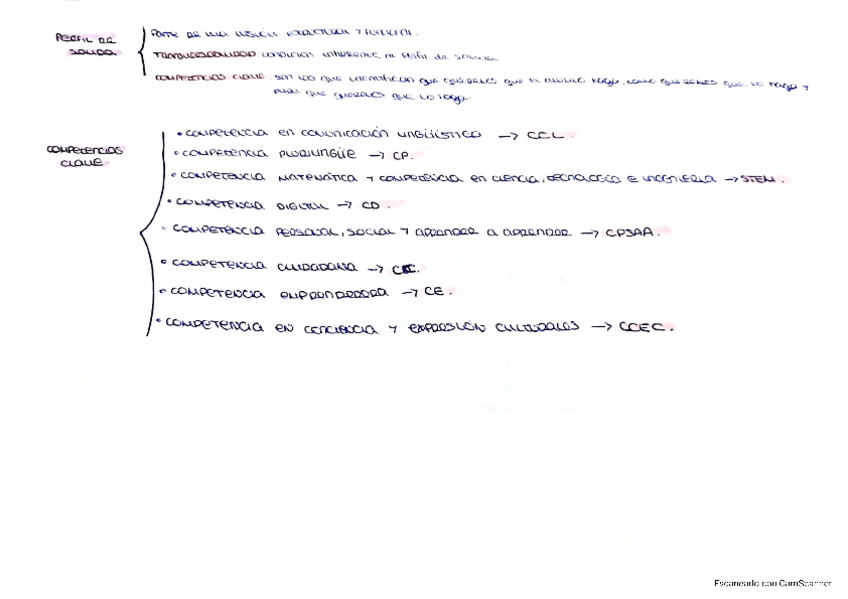 PERFIL DE SALIDA
PARTE DE UNA VISIÓN ESTRUCTURAL Y FUNCIONAL.
TRANSVERSALIDAD CONDICIÓN INHERENTE AL PERFIL DE SALIDA
COMPETENCIAS CLAVE: SON LAS QUE IDENTIFICAN QUE QUEREMOS QUE EL ALUMNO HAGA, COMO QUEREMOS QUE LO HAGA Y
PARA QUE QUEREMOS QUE LO HAGA.
COMPETENCIAS CLAVE
• COMPETENCIA EN COMUNICACIÓN LINGÜÍSTICA → CCL.
• COMPETENCIA PLURILINGÜE → CP.
• COMPETENCIA MATEMÁTICA Y COMPETENCIA EN CIENCIA, TECNOLOGÍA E INGENIERÍA → STEM.
• COMPETENCIA DIGITAL → CD.
• COMPETENCIA PERSONAL, SOCIAL Y APRENDER A APRENDER → CPSAA.
• COMPETENCIA CIUDADANA → CC.
• COMPETENCIA EMPRENDEDORA → CE.
• COMPETENCIA EN CONCIENCIA Y EXPRESIÓN CULTURALES → CCEC.
Escaneado con CamScanner